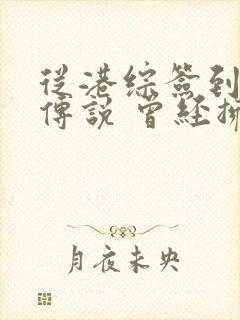 從港綜簽到
傳說 曾經擁
月夜未央